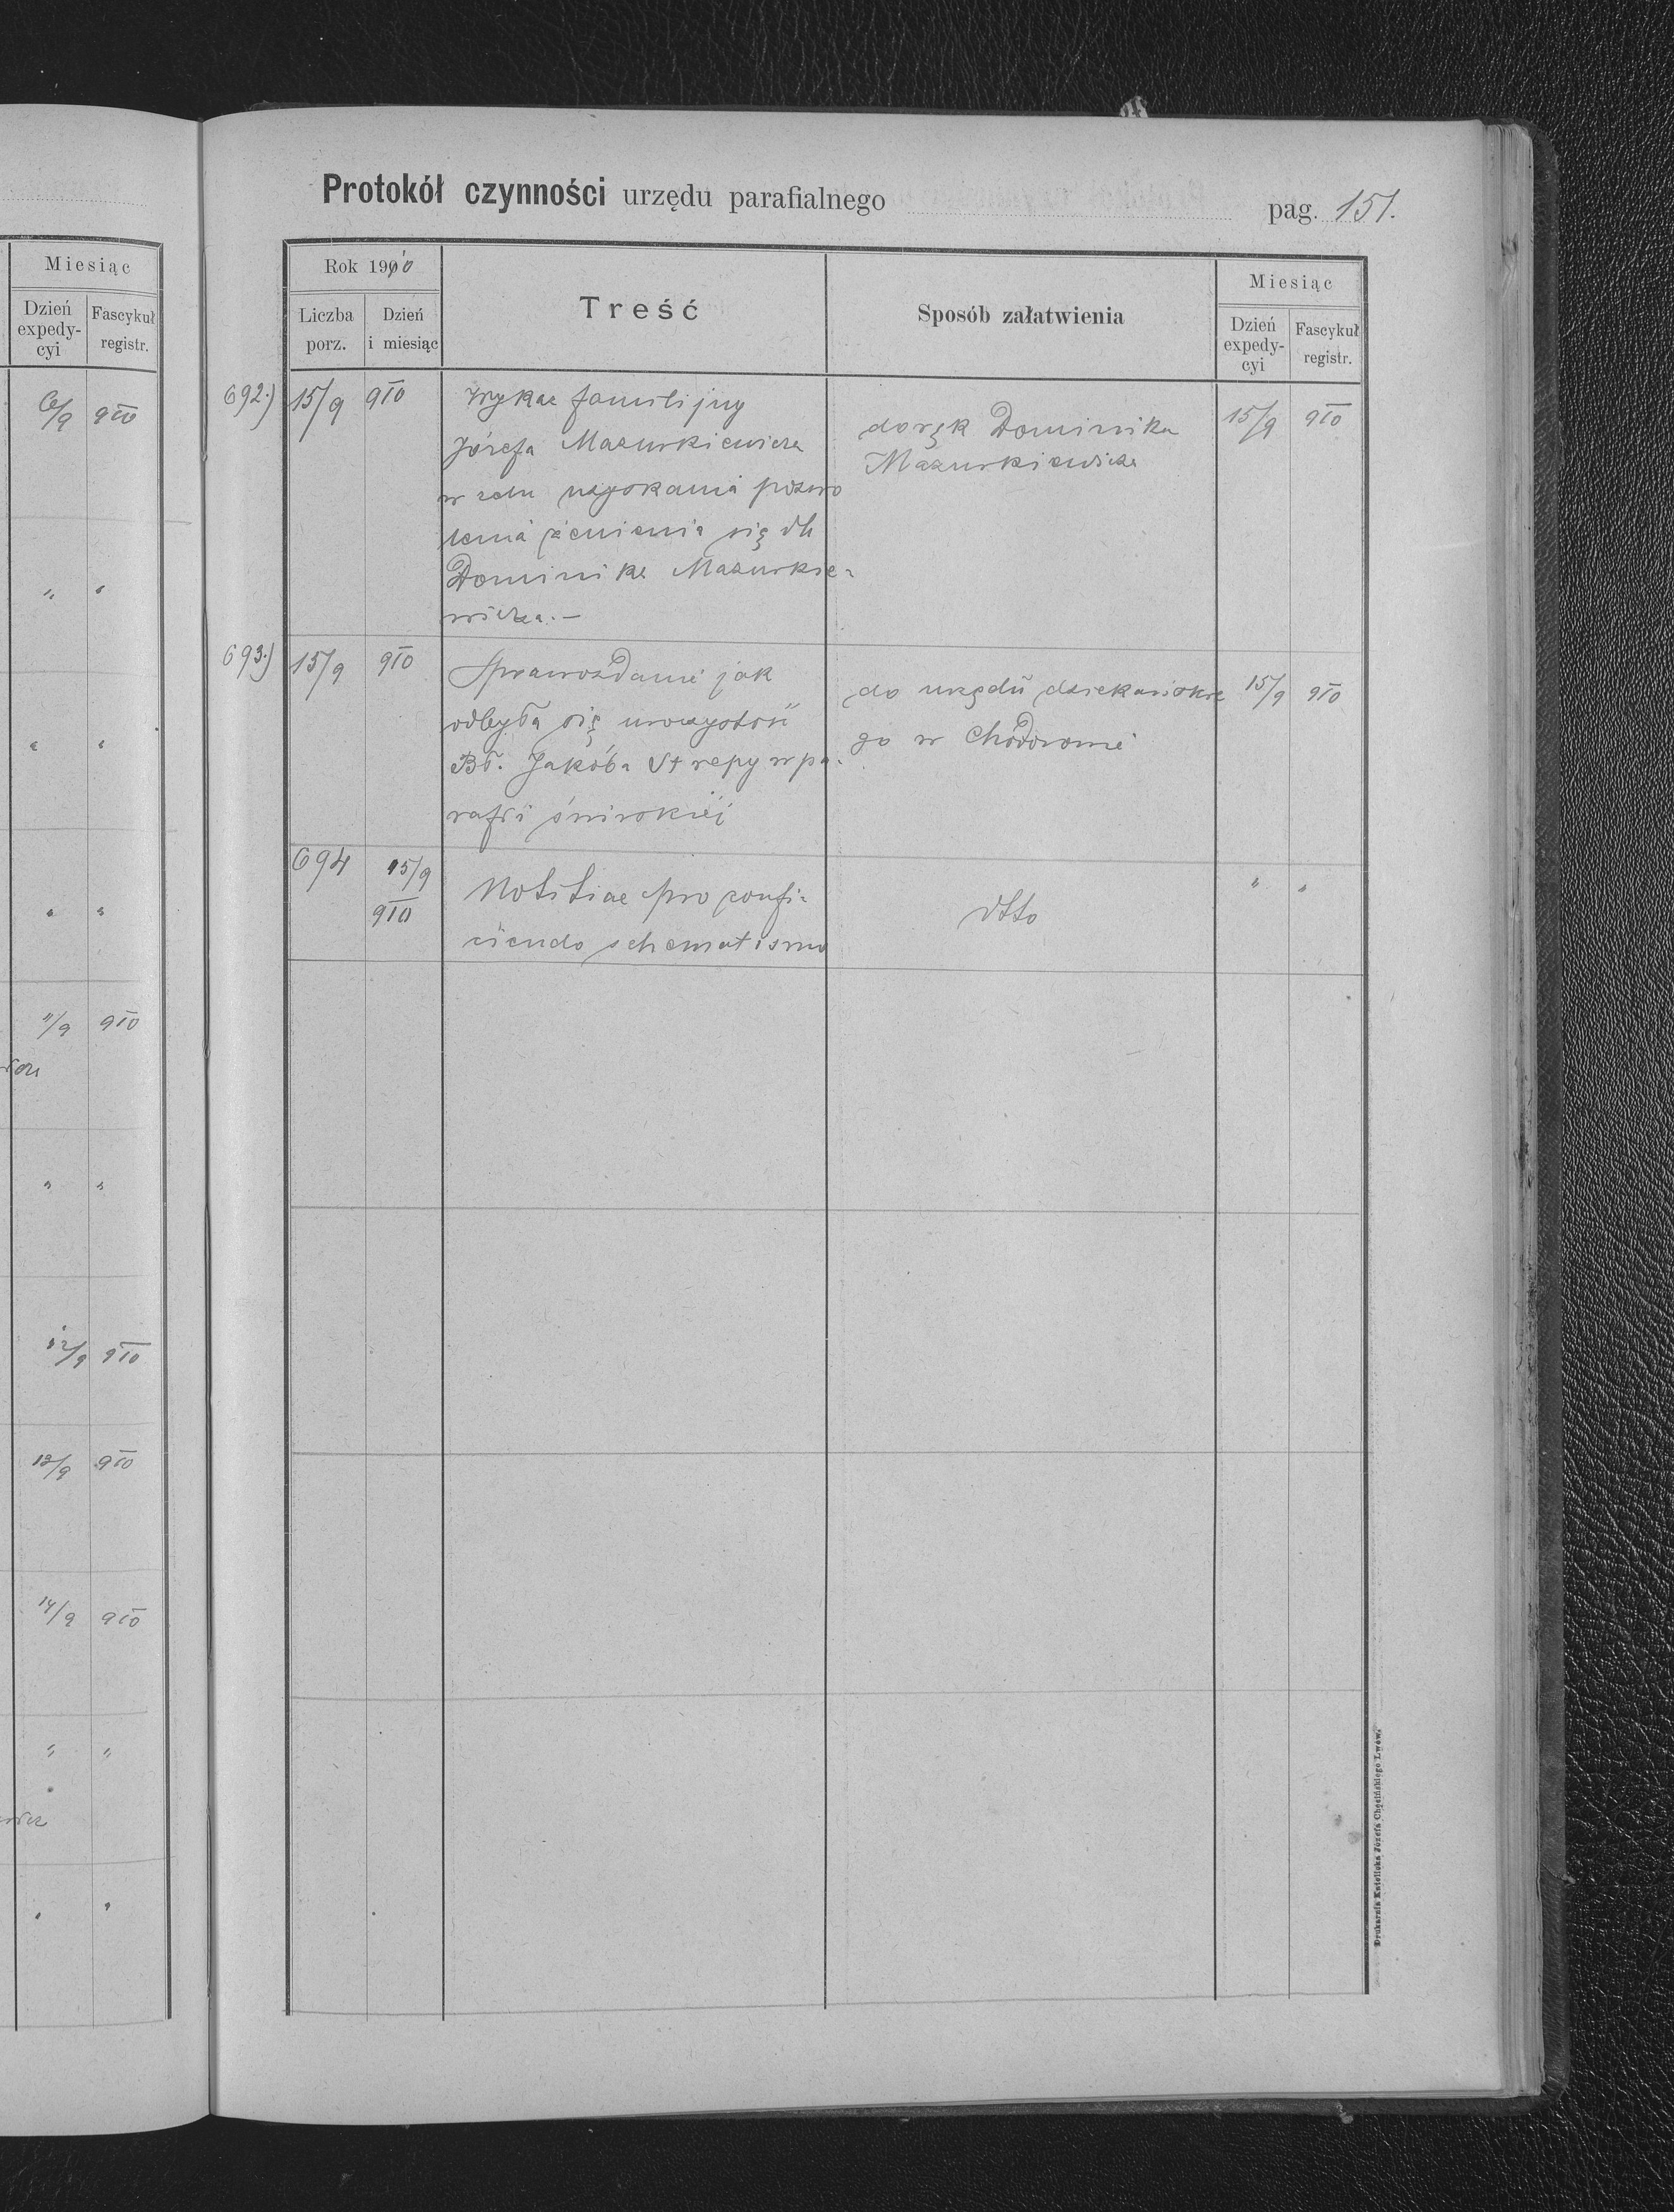 Miesiąc
Dzień expedycyi
Fascykuł registr.
6/9 910
" "
" "
" "
11/9 910
" "
12/9 910
13/9 910
14/9 910
" "
" "
Protokół czynności urzędu parafialnego pag. 151.
Rok 1910
Liczba porz.
Dzień i miesiąc
Treść
Sposób załatwienia
Miesiąc
Dzień expedy-
cyi
Fascykuł
registr.
692.) 15/9 910
Wykaz familijny
Józefa Mazurkiewicza
w celu uzyskania pozwo
lenia żenienia się dla
Dominika Mazurkie-
wicza.—
do rąk Dominika
Mazurkiewicza
15/9 910
693.) 15/9 910
Sprawozdanie jak
odbyła się uroczystość
Bł. Jakóba Strepy w pa-
rafii
do urzędu dziekańskie
go w Chodorowie
15/9 910
694 15/9
910
Notitiae pro confi-
ciendo schematismo
dtto
" "
Drukarnia Katolicka Józefa Chęcińskiego Lwów.